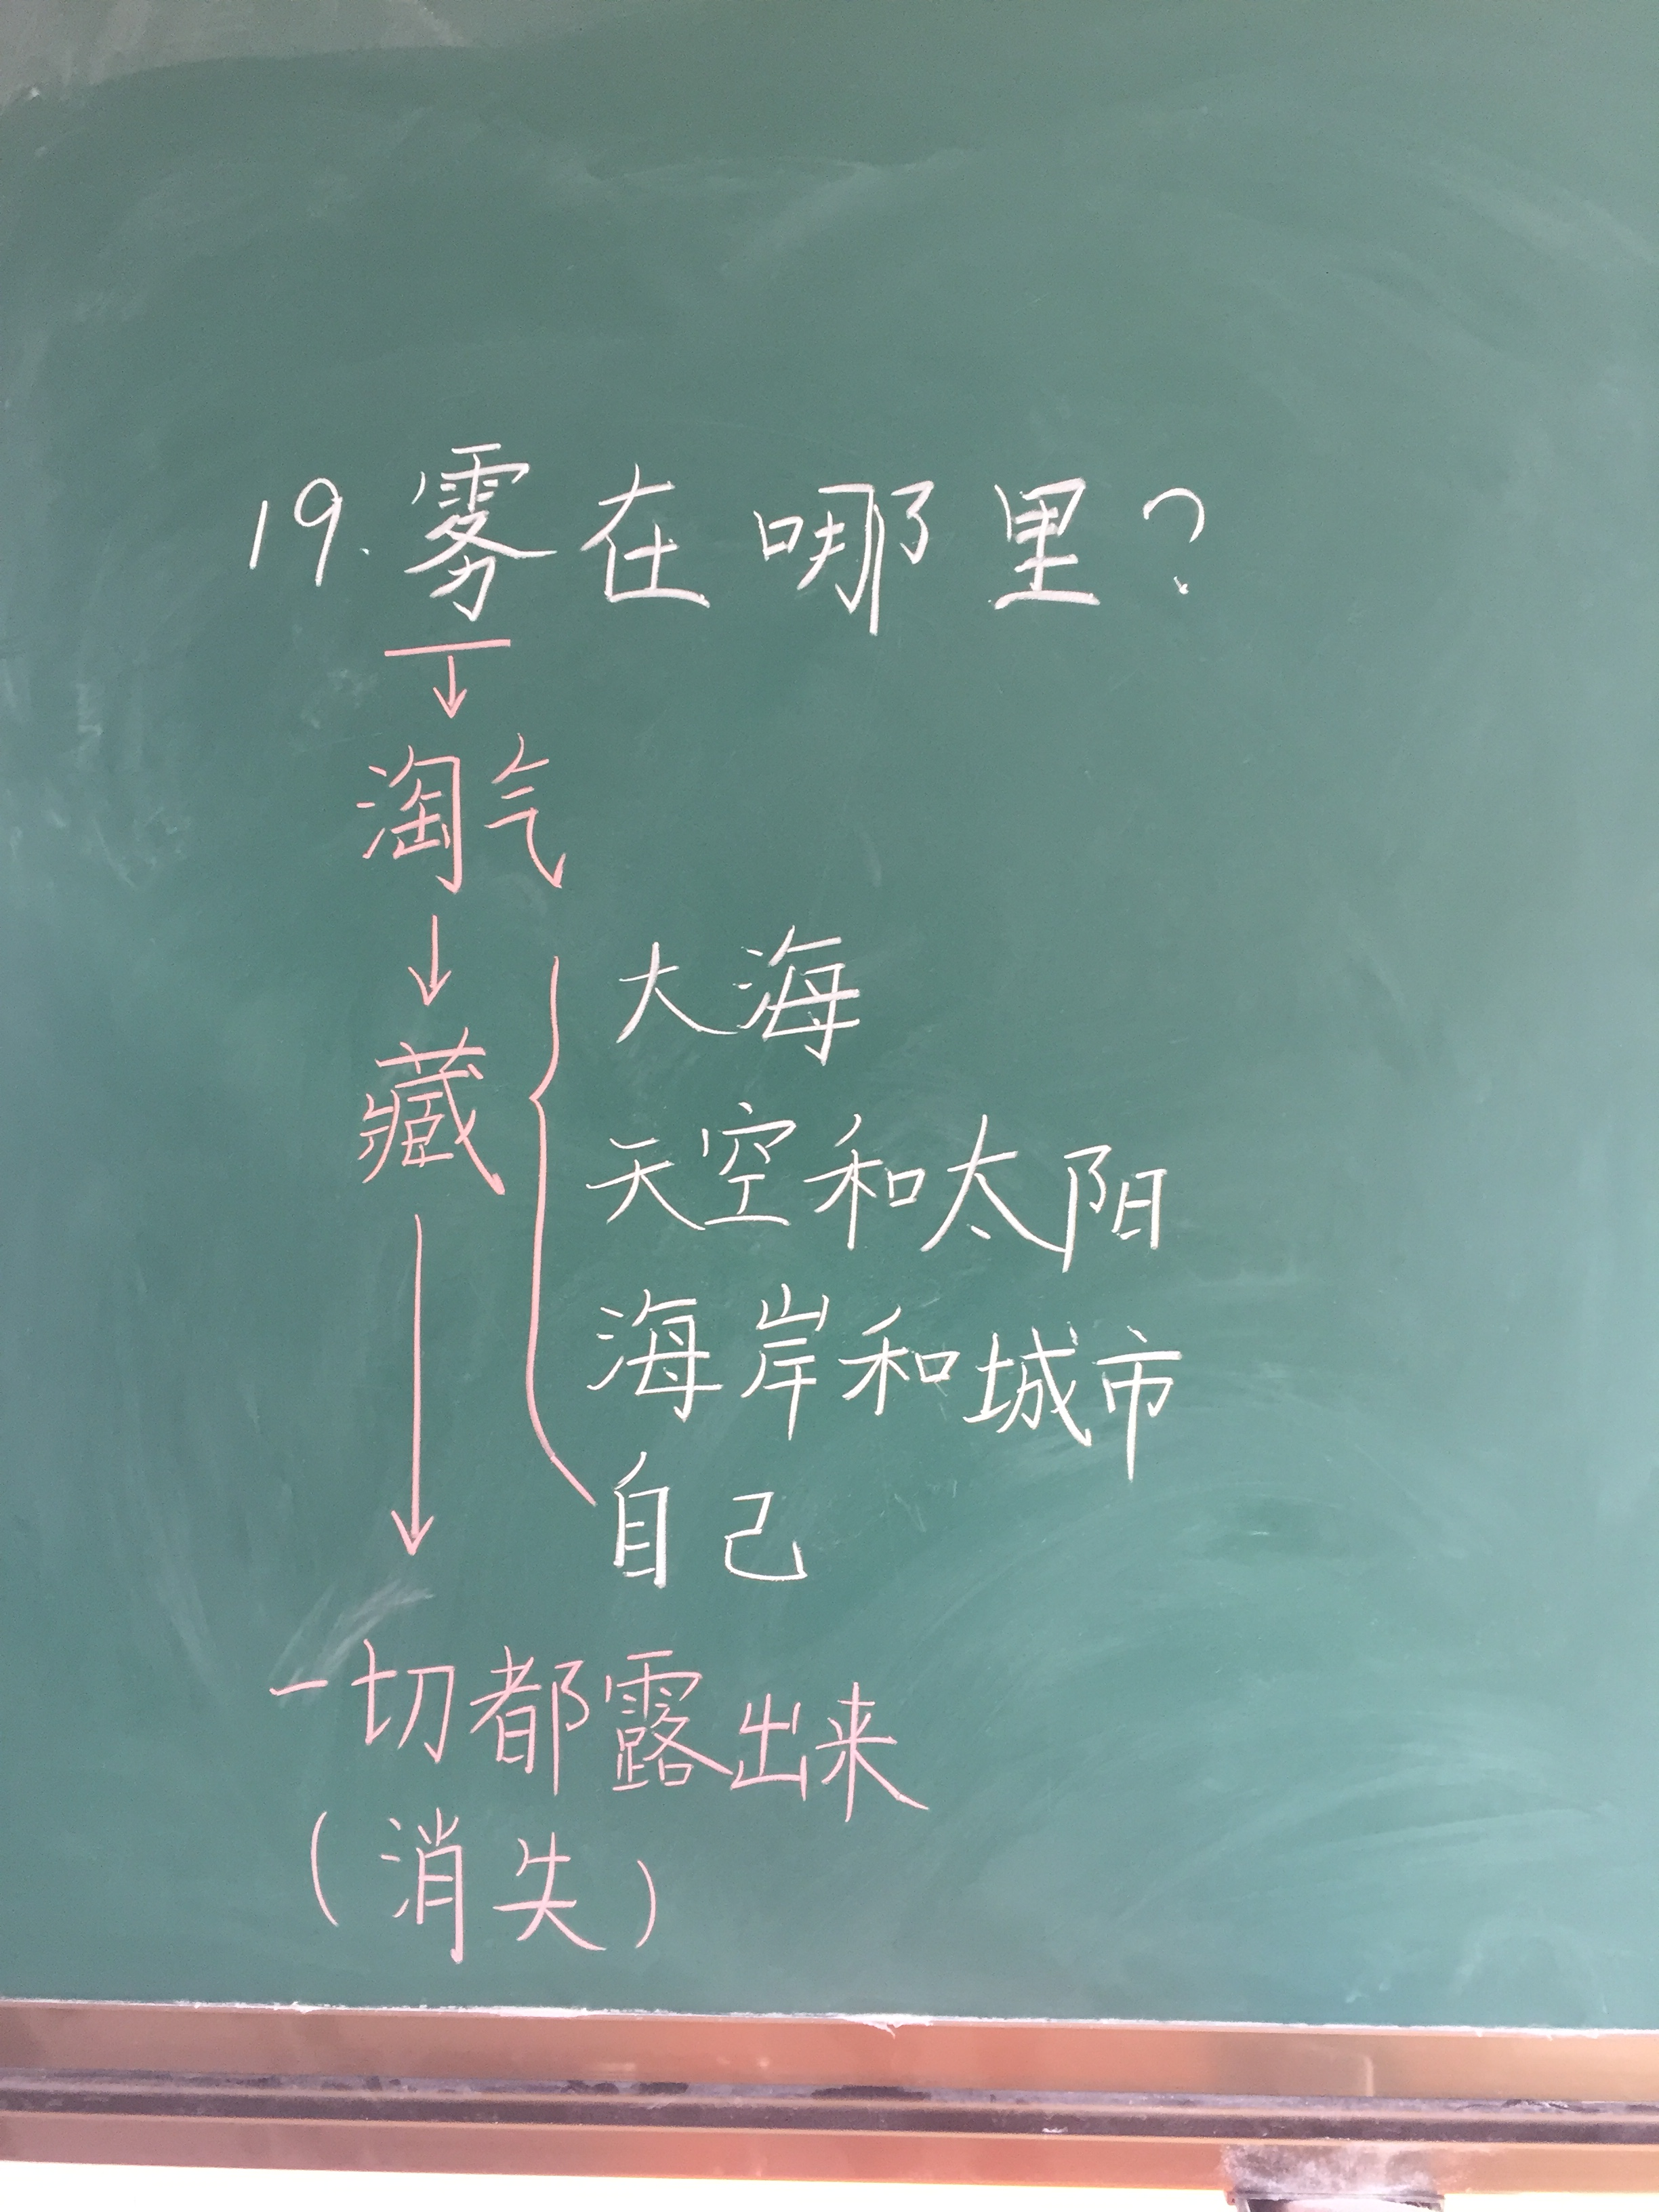 19.雾在哪里？
淘气
藏
大海
天空和太阳
海岸和城市
自己
一切都露出来
（消失）